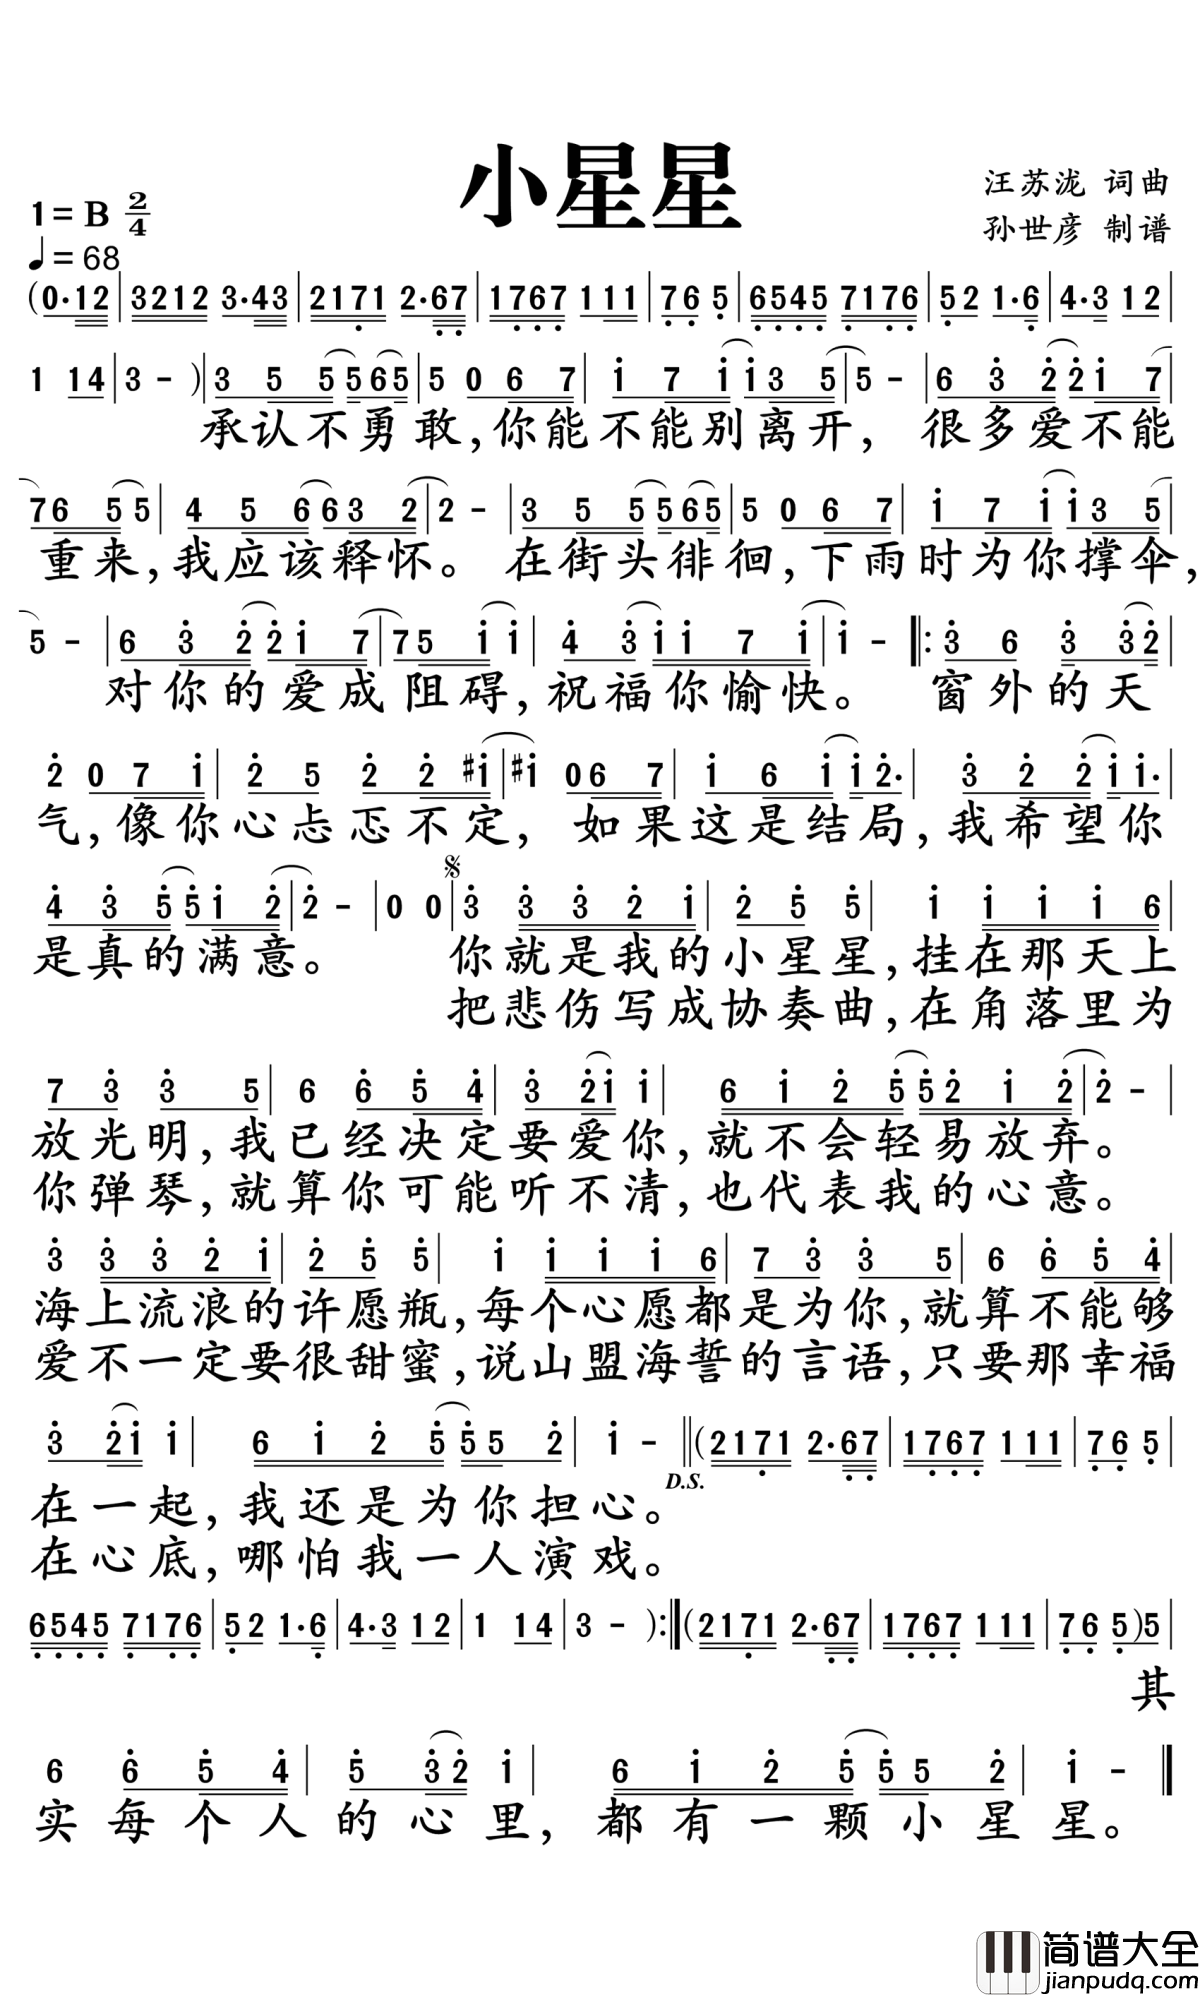 小星星
汪苏泷 词曲
1= B 2/4
孙世彦 制谱
♩= 68
(0·12|3212 3·43|2171 2·67|1767 111|76 5|6545 7176|52 1·6|4·3 12|
1 14|3 - )|3 5 5565|5 0 6 7|i 7 ii3 5|5 -|6 3 22i 7|
承认不勇敢,你能不能别离开, 很多爱不能
76 55|4 5 663 2|2 -|3 5 5565|5 0 6 7|i 7 ii3 5|
重来,我应该释怀。在街头徘徊,下雨时为你撑伞,
5 -|6 3 22i 7|75 ii|4 3ii 7 i|i -‖:3 6 3 32|
对你的爱成阻碍,祝福你愉快。 窗外的天
2 0 7 i|2 5 2 2 #i|#i 06 7|i 6 ii2·|3 2 2ii·|
气,像你心忐忑不定, 如果这是结局,我希望你
4 3 55i 2|2 -|0 0|𝄋3 3 3 2 i|2 5 5|i i i i 6|
是真的满意。 你就是我的小星星,挂在那天上
把悲伤写成协奏曲,在角落里为
7 3 3 5|6 6 5 4|3 2i i|6 i 2 552 i 2|2 -|
放光明,我已经决定要爱你,就不会轻易放弃。
你弹琴,就算你可能听不清,也代表我的心意。
3 3 3 2 i|2 5 5|i i i i 6|7 3 3 5|6 6 5 4|
海上流浪的许愿瓶,每个心愿都是为你,就算不能够
爱不一定要很甜蜜,说山盟海誓的言语,只要那幸福
3 2i i|6 i 2 555 2|i -‖(2171 2·67|1767 111|76 5|
D.S.
在一起,我还是为你担心。
在心底,哪怕我一人演戏。
6545 7176|52 1·6|4·3 12|1 14|3 - ):‖(2171 2·67|1767 111|76 5)5|
其
6 6 5 4|5 32 i|6 i 2 555 2|i -‖
实每个人的心里, 都有一颗小星星。
简谱大全
jianpudq.com